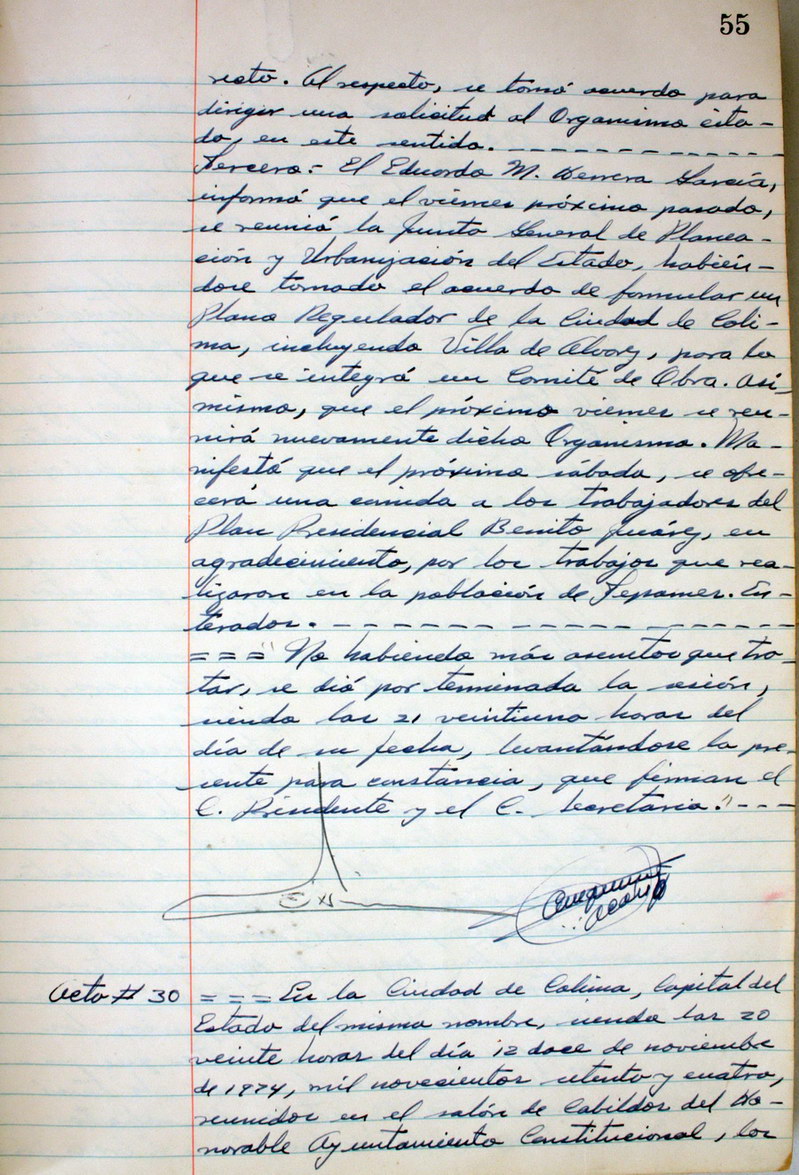 55
recto. Al respecto, se tomó acuerdo para
dirigir una solicitud al Organismo cita-
do, en este sentido. - - - - - - - - - - - -
Tercero.- El Eduardo M. Herrera García,
informó que el viernes próximo pasado,
se reunió la Junta General de Planea-
ción y Urbanización del Estado, habién-
dose tomado el acuerdo de formular un
Plano Regulador de la Ciudad de Coli-
ma, incluyendo Villa de Alvarez, para lo
que se integró un Comité de Obra. Asi-
mismo, que el próximo viernes se reu-
nirá nuevamente dicho Organismo. Ma-
nifestó que el próximo sábado, se ofre-
cerá una comida a los trabajadores del
Plan Presidencial Benito Juárez, en
agradecimiento, por los trabajos que rea-
lizaron en la población de Tepames. En-
terados. - - - - - - - - - - - - - - - - -
= = = "No habiendo más asuntos que tra-
tar, se dió por terminada la sesión,
siendo las 21 veintiuna horas del
día de su fecha, levantándose la pre-
sente para constancia, que firman el
C. Presidente y el C. Secretario." - - -
Acta # 30 = = = En la Ciudad de Colima, Capital del
Estado del mismo nombre, siendo las 20
veinte horas del día 12 doce de noviembre
de 1974, mil novecientos setenta y cuatro,
reunidos en el salón de Cabildos del Ho-
norable Ayuntamiento Constitucional, los